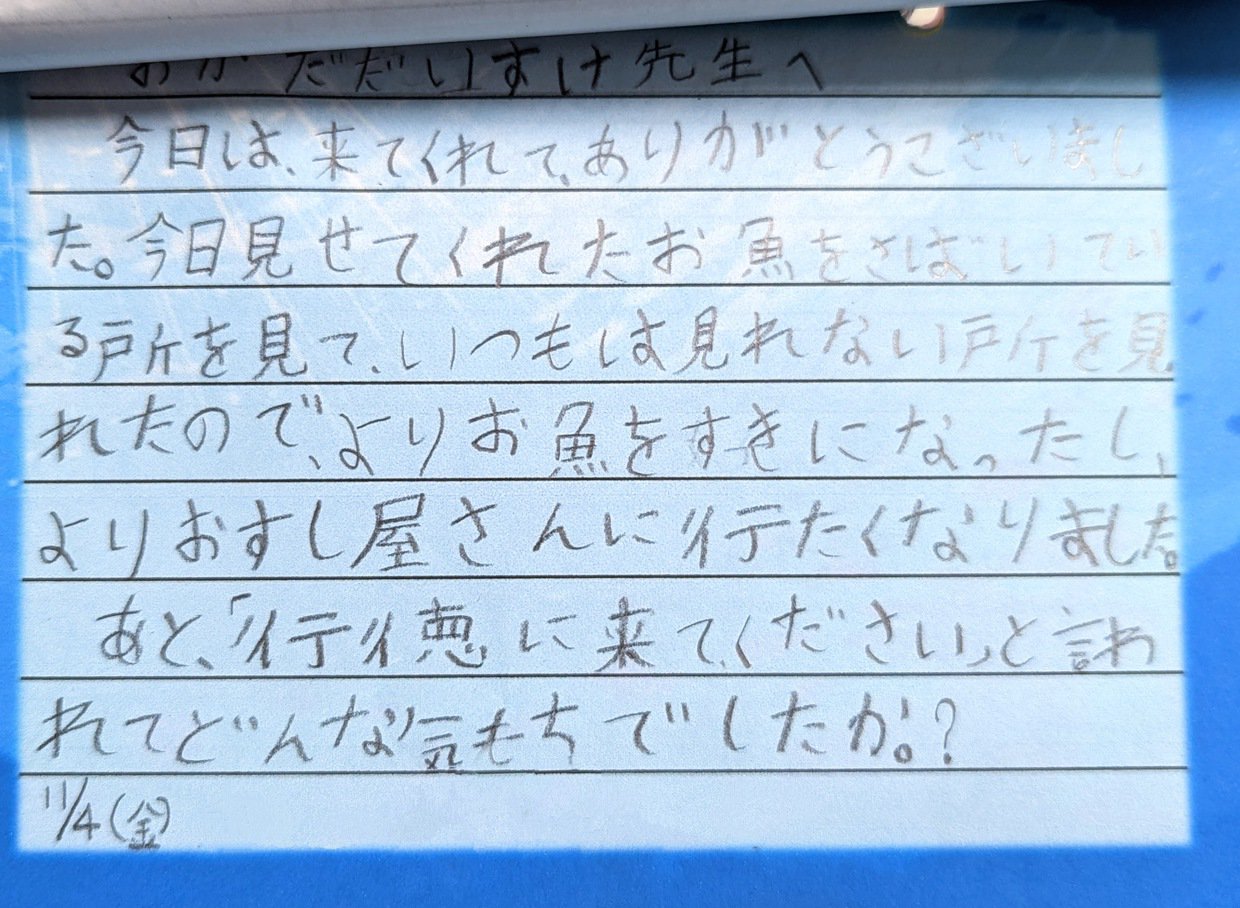 おかだだいすけ先生へ
今日は、来てくれて、ありがとうこざいまし
た。今日見せてくれたお魚をさばいてい
る所を見て、いつもは見れない所を見
れたので、よりお魚をすきになったし、
よりおすし屋さんに行たくなりました。
あと、「行イ恵に来てください」と言われ
れてどんな気もちでしたか。?
11/4(金)